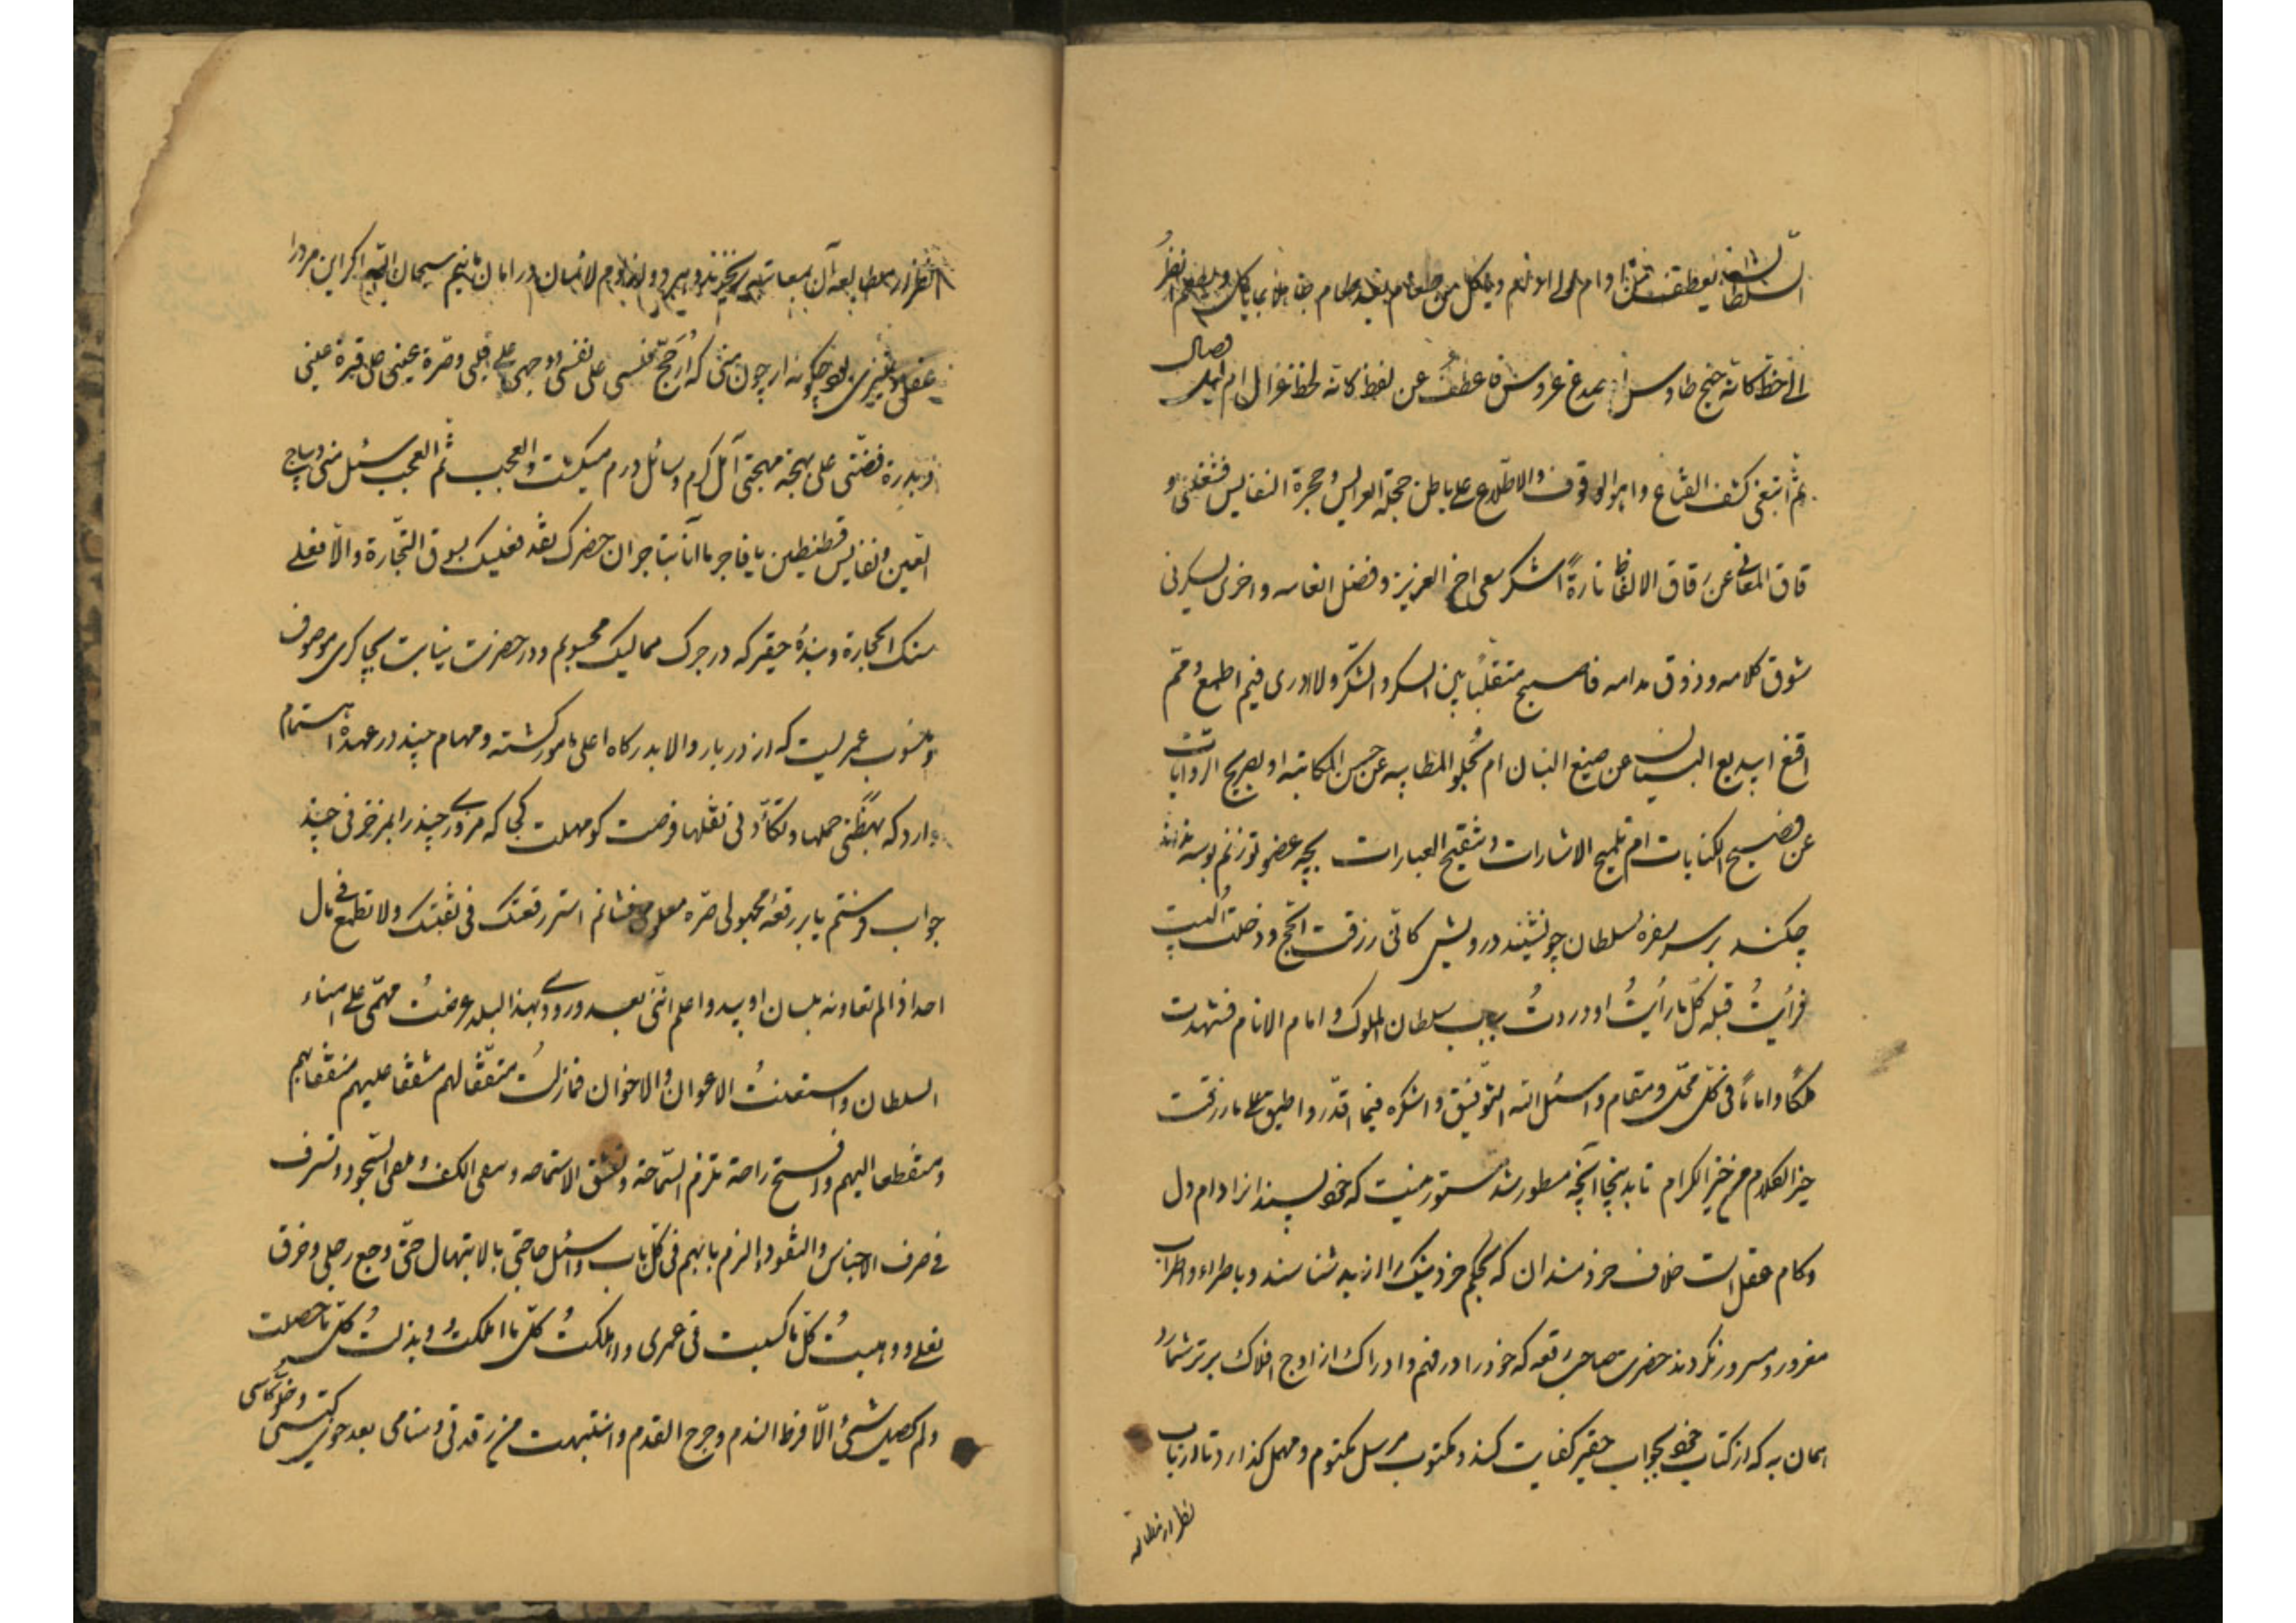 الی خط کانه جنح طاوس ام صدغ عروس فاعطف عن لفظ کانه لحظ غزال ام وصال
ثم ابتغی کشف القناع واهوا الوقوف والاطلاع علی باطن حجلة العرایس و حجرة النفایس فشغلنی و
قاق المعانی عن رقاق الالفاظ تارةً اشکر مع اخ العزیز وفضل انعامه واخری یسکرنی
شوق کلامه وذوق مدامه فاصبح متقلباً بین السکر والشکر ولا ادری فیم اطمع وثم
اقنع ابدیع البیان عن صنیع البنان ام بحلو المطایبه عن حسن المکاتبه او بصریح الروایات
عن فصیح الکنایات ام بتلمیح الاشارات وتنقیح العبارات بچه عضو تو زنم بوسه نداند
چکند بر سر سفره سلطان چو نشیند درویش کانی رزقت الحج ودخلت البیت
فرأیتُ قبله کل ما رأیتُ او وردتُ بباب سلطان الملوک و امام الانام فشهدت
ملکاً واماماً فی کل محل ومقام واسئل الله التوفیق واشکره فیما اقدر واطیق علی ما رزقت
خیر الکلام من خیر الکرام تا بدینجا آنچه مسطور شد مستور نیست که خودپسند انرا دام دل
وکام عقل است خلاف خردمندان که بحکم خرد نیک را از بد شناسند وباطراء واطراب
مغرور ومسرور نکردند حضرت صاحب رقعه که خود را در فهم وادراک از اوج افلاک برتر شمارد
همان به که از کتاب خود بجواب حقیر کفایت کند ومکتوب مرسل مکتوم ومهمل کذارد تا ارباب
نظر از مطالعه
النظر از مطالعه آن بمعایب در امان مانیم سبحان الله اکر این مرد را
عقل و تمیزی بود چکونه از چون منی که ارجح نفسی علی نفسی ووجهی علی قلبی وصرة عینی علی قرة عینی
وبدرة فضتی علی بهجة مهجتی آمل کرم وسائل درم میکشت والعجب ثم العجب سئل منی دیباج
الصین ونفایس قسطنطین یا فاجر ما انا بتاجر ان حضرک نقد فعلیک بسوق التجارة والا فعلی
سنک الحجارة وبندهٔ حقیر که در جرک ممالیک محسوبم ودر حضرت بنیابت بچاکری موصوف
ومنسوب عمریست که از دربار والا بدرکاه اعلی مامور کشته ومهام چند در عهدهٔ اهتمام
دارد که بهظنی حملها وتکأد فی نقلها فرصت کو مهلت کجا که مردی چند را بمزخرفی چند
جواب فرستم یا بر رقعهٔ مجهولی صره معلوم فشانم استر رقعتک فی بقعتک ولا تطمع فی مال
احد اذا لم تعاونه بلسان او ید واعلم اننی بعد ورودی بهذا البلد عرضتُ مهمی علی امناء
السلطان واستعنتُ الاعوان والاخوان فما زلتُ متفقاً لهم مشفقاً علیهم منفقاً بهم
ومنقطعا الیهم وافتح راحة تلزم السماحة وتعشق الاستماحه وسعی الکف وسعی السجود وتسرف
فی صرف الاجناس والنقود والزم بابهم فی کل باب واسئل حاجتی بالابتهال حتی وجع رجلی وخرق
نعلی ووهبتُ کل ما کسبت فی عمری واهلکتُ کل ما املکتُ وبذلت کل ما حصلت
ولم یحصل شیئ الا فرط الندم وجرح القدم وانتبهت من رقدتی ومنامی بعد خلو کیسی وخلو کأسی